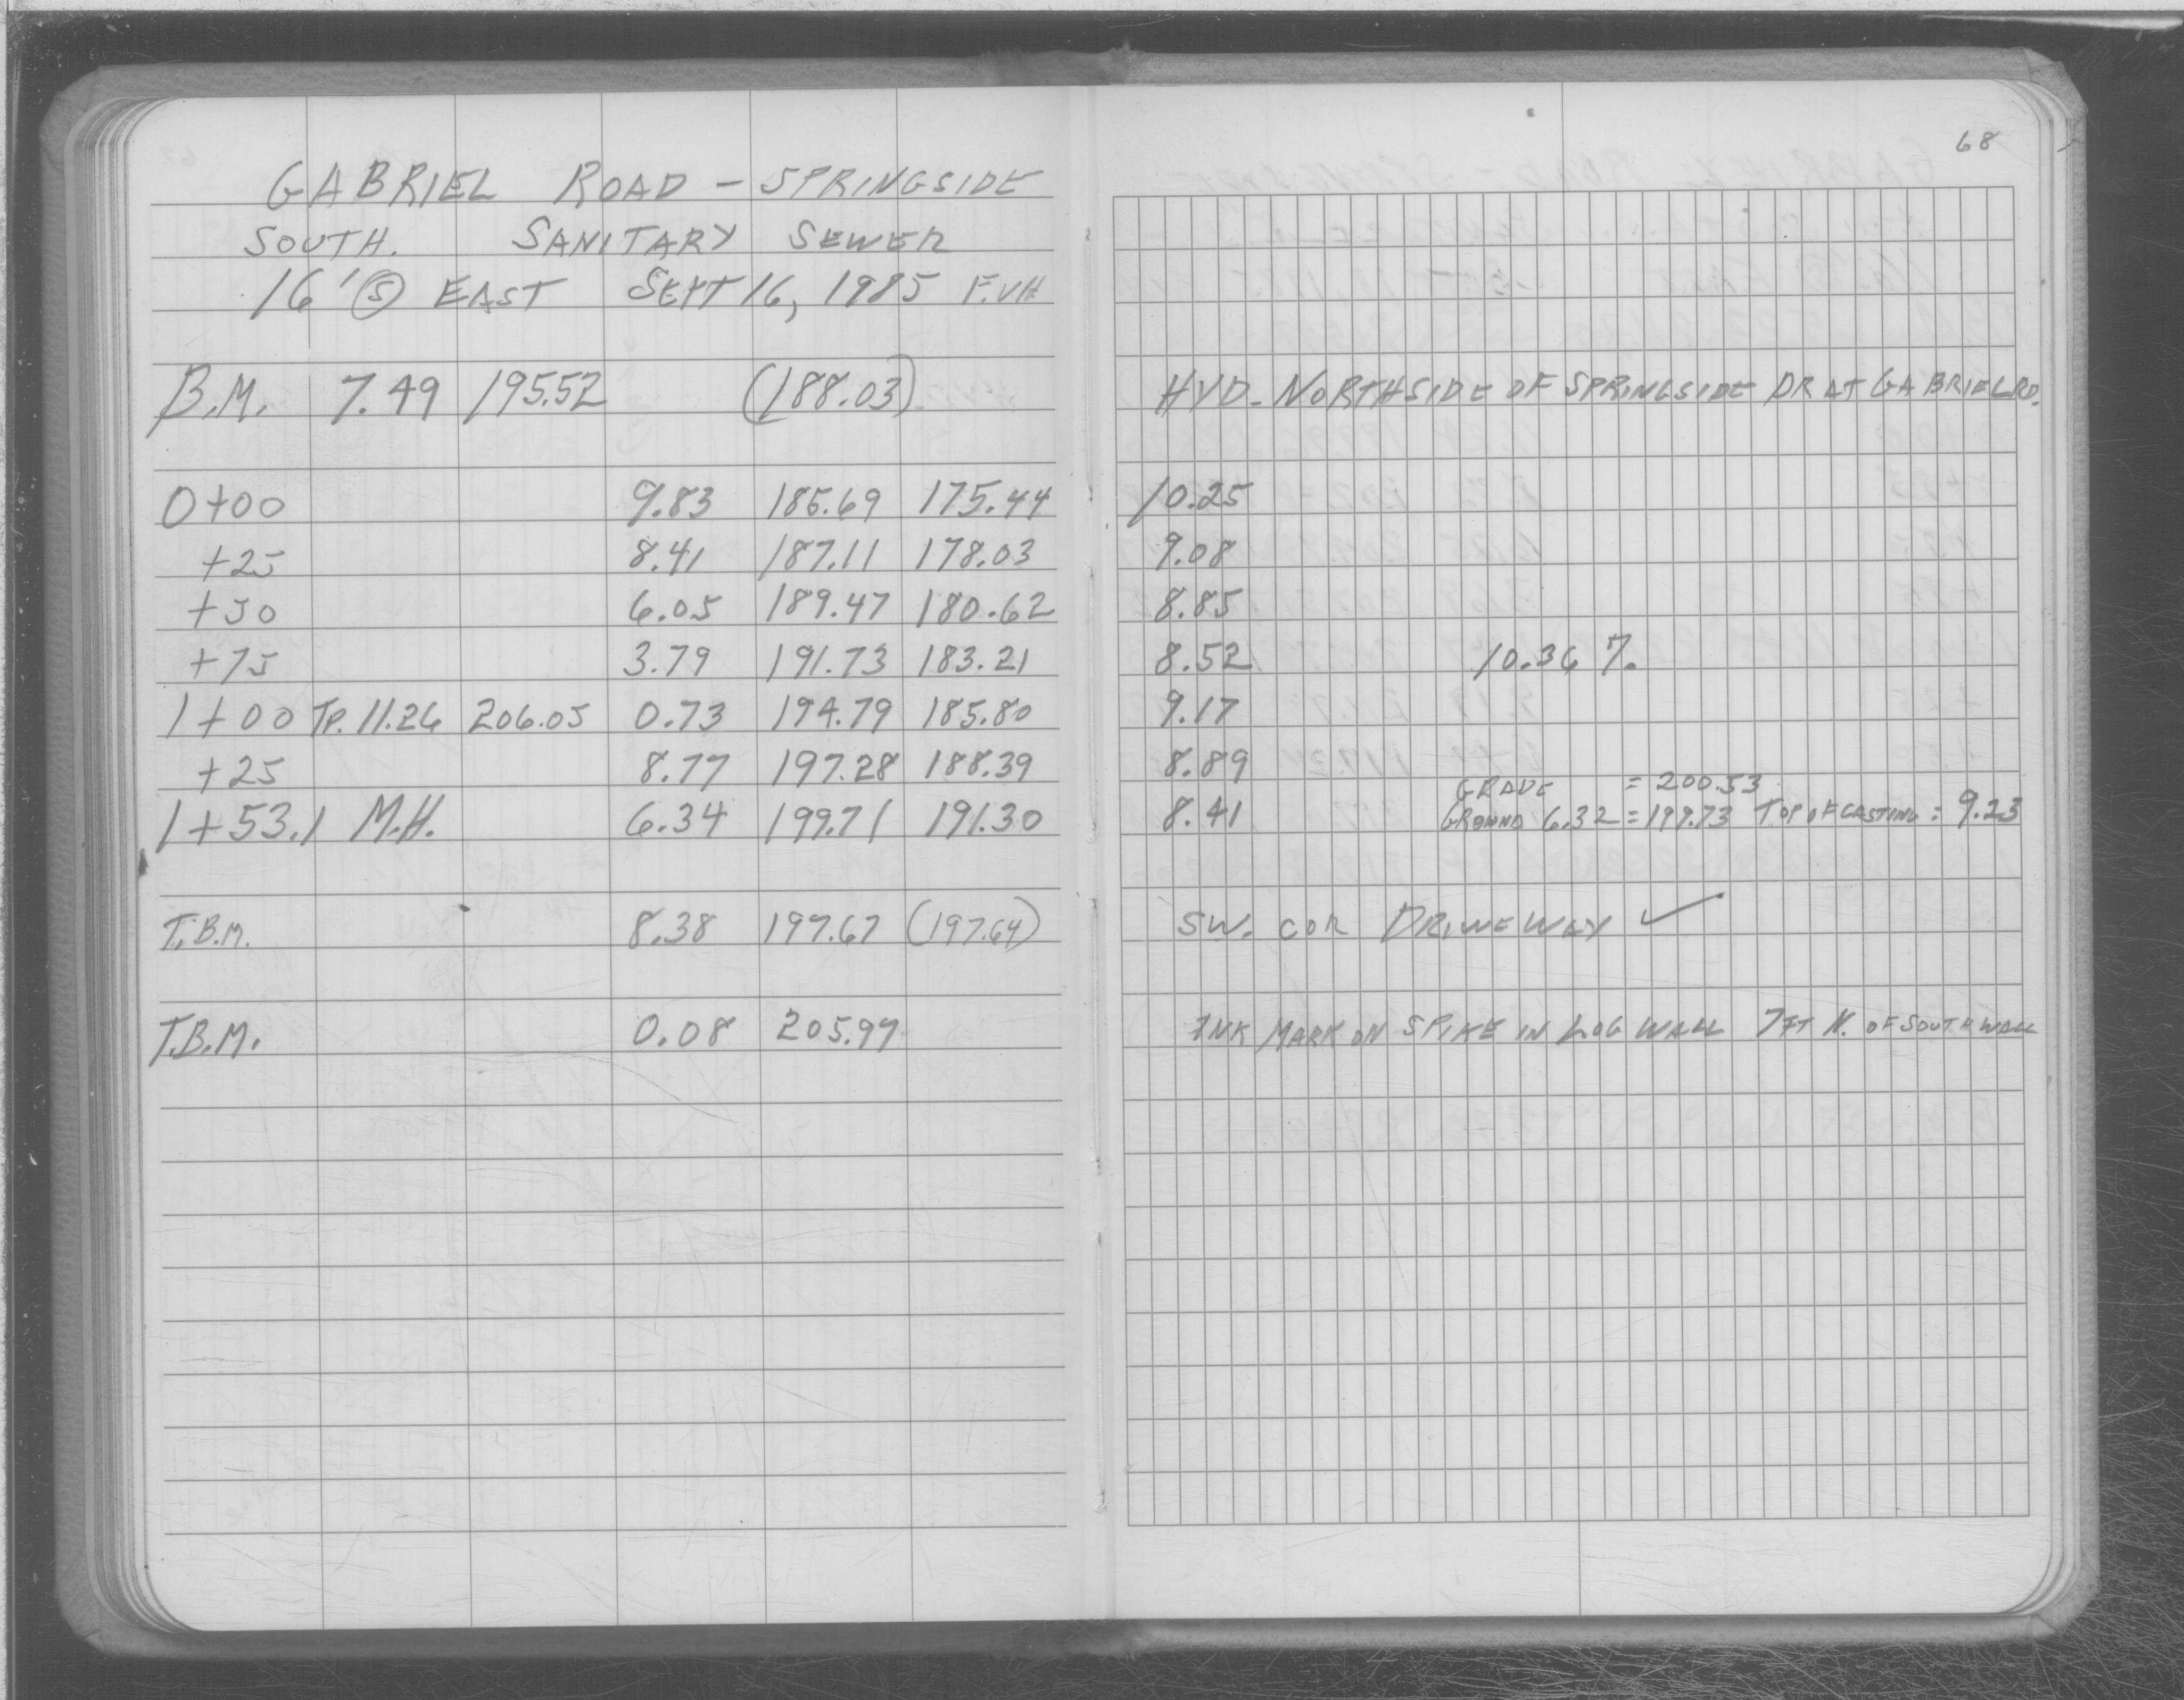 GABRIEL ROAD - SPRINGSIDE
SOUTH. SANITARY SEWER
16' Ⓢ EAST SEPT 16, 1985 F.VH
B.M. 7.49 195.52 (188.03)
0+00 9.83 185.69 175.44
+25 8.41 187.11 178.03
+50 6.05 189.47 180.62
+75 3.79 191.73 183.21
1+00 TP. 11.26 206.05 0.73 194.79 185.80
+25 8.77 197.28 188.39
1+53.1 M.H. 6.34 199.71 191.30
T.B.M. 8.38 197.67 (197.64)
T.B.M. 0.08 205.97
68
HYD. NORTHSIDE OF SPRINGSIDE DR AT GABRIEL RD.
10.25
9.08
8.85
8.52 10.36 %
9.17
8.89
GRADE = 200.53
8.41 GROUND 6.32 = 199.73 TOP OF CASTING = 9.23
SW. COR DRIVEWAY ✓
INK MARK ON SPIKE IN LOG WALL 7FT N. OF SOUTH WALL